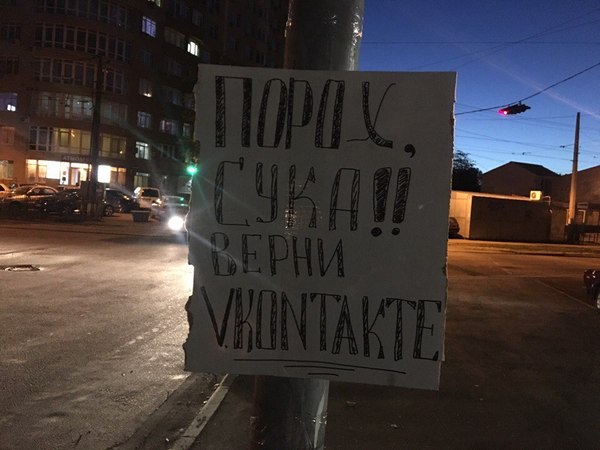 ПОРОХ,
СУКА!!
ВЕРНИ
V.KONTAKTE